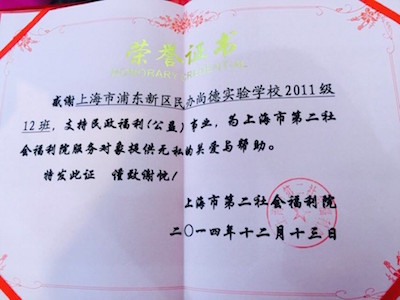 荣誉证书
HONORARY CREDENTIAL
感谢上海市浦东新区民办尚德实验学校2011级
12班，支持民政福利(公益)事业，为上海市第二社
会福利院服务对象提供无私的关爱与帮助。
特发此证 谨致谢忱！
上海市第二社会福利院
二〇一四年十二月十三日